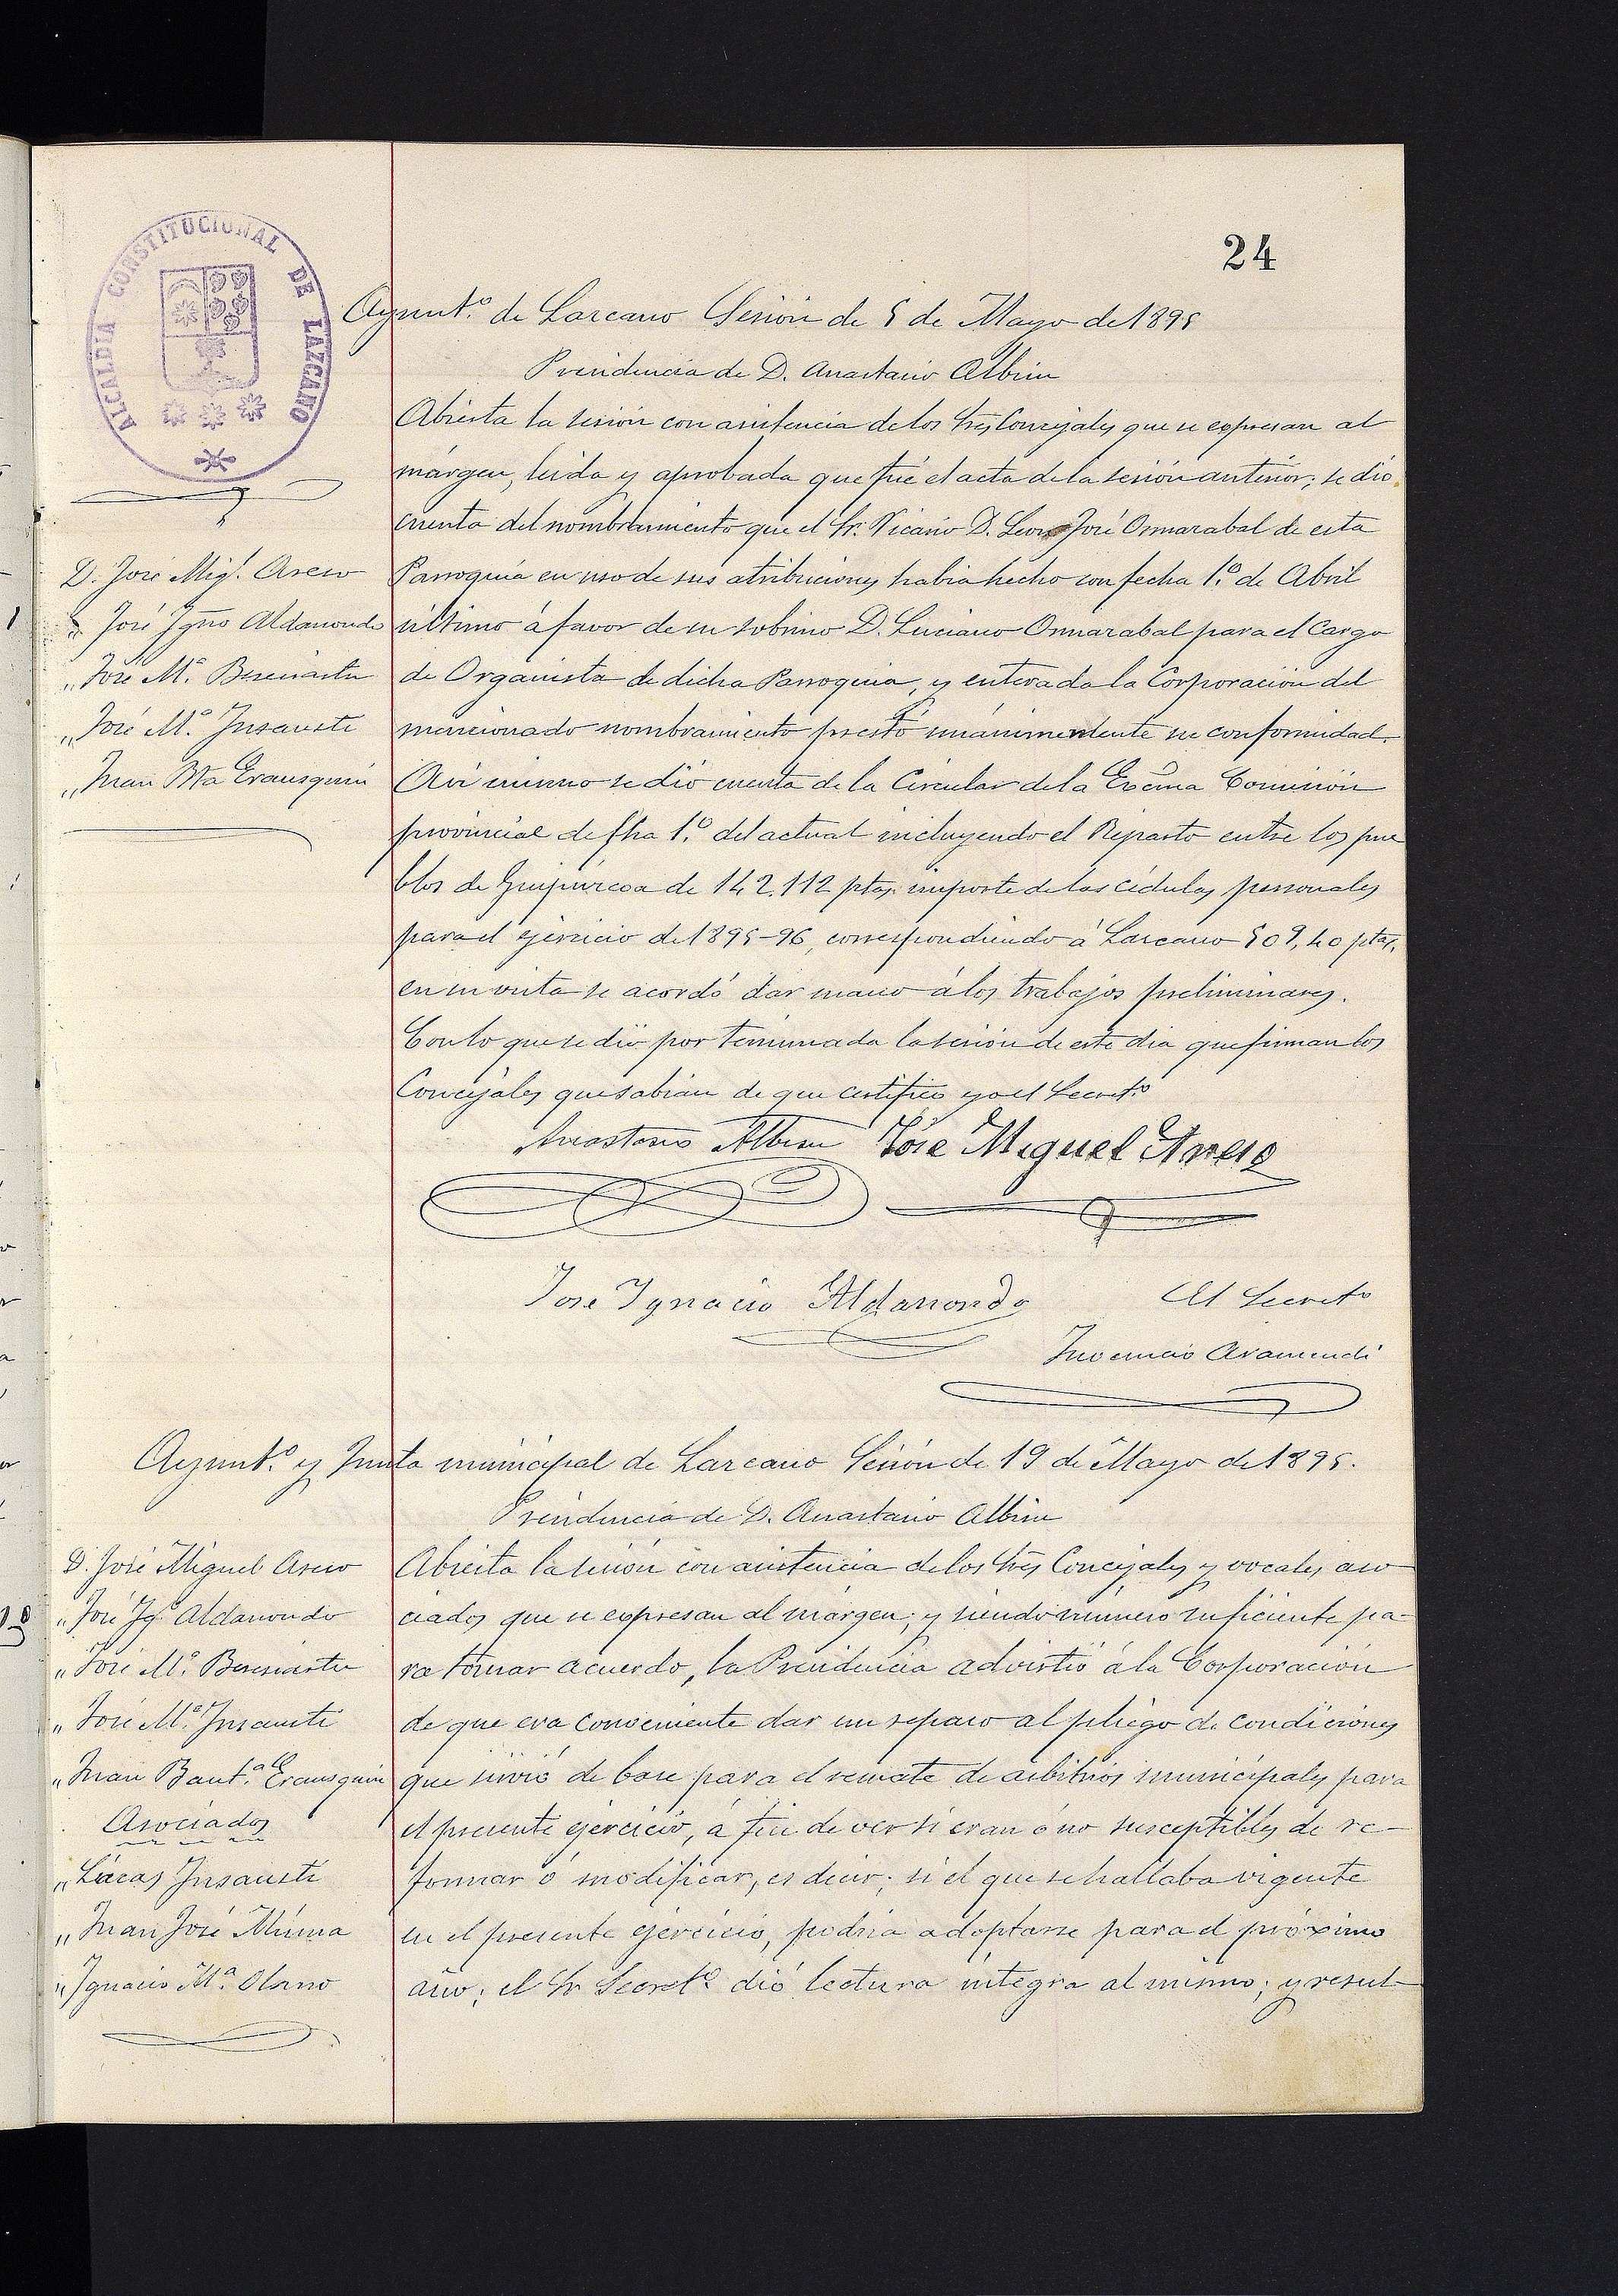 24
ALCALDIA CONSTITUCIONAL DE LAZCANO
Ayunt.º de Lazcano Sesión de 5 de Mayo de 1895
Presidencia de D. Anastasio Albisu
D. José Mig.l Aseso
" José Ygnº Aldanondo
" José M.ª Beresiartu
" José M.ª Insausti
" Juan Bta Erausquin
Abierta la sesión con asistencia de los Sres Concejales que se expresan al
márgen, leida y aprobada que fué el acta de la sesión anterior; se dió
cuenta del nombramiento que el Sr. Vicario D. José Ormazabal de esta
Parroquia en uso de sus atribuciones habia hecho con fecha 1.º de Abril
último á favor de su sobrino D. Luciano Ormazabal para el Cargo
de Organista de dicha Parroquia, y enterada la Corporación del
mencionado nombramiento prestó unánimemente su conformidad.
Asi mismo se dió cuenta de la Circular de la Excma Comisión
provincial de fha 1.º del actual incluyendo el Reparto entre los pue
blos de Guipúzcoa de 142.112 ptas. importe de las cédulas personales
para el ejercicio de 1895-96, correspondiendo á Lazcano 509,40 ptas.
en su vista se acordó dar mano á los trabajos preliminares.
Con lo que se dió por terminada la sesión de este dia que firman los
Concejales que sabian de que certifico yo el Secretº
Anastasio Albisu José Miguel Aseso
Jose Ygnacio Aldanondo El Secretº
Inocencio Aramendi
Ayunt.º y Junta municipal de Lazcano Sesión de 19 de Mayo de 1895.
Presidencia de D. Anastasio Albisu
D. José Miguel Aseso
" José Ygº Aldanondo
" José M.ª Beresiartu
" José M.ª Insausti
" Juan Baut.ª Erausquin
Asociados
" Lúcas Insausti
" Juan José Múrua
" Ygnacio M.ª Olano
Abierta la sesión con asistencia de los Sres Concejales y vocales aso
ciados que se expresan al márgen; y siendo número suficiente pa-
ra tomar acuerdo, la Presidencia advirtió á la Corporación
de que era conveniente dar un repaso al pliego de condiciones
que sirvió de base para el remate de arbitrios municipales para
el presente ejercicio, á fin de ver si eran ó no susceptibles de re-
formar ó modificar, es decir; si el que se hallaba vigente
en el presente ejercicio, podria adoptarse para el próximo
año; el Sr Secretº dió lectura integra al mismo; y resul-